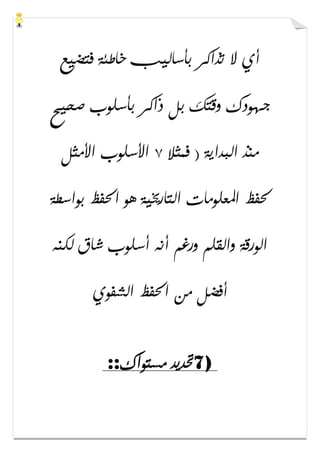 أي لا تذاكر بأساليب خاطئة فتضيع
جهودك وقتك بل ذاكر بأسلوب صحيح
منذ البداية ( فمثلا ٧ الأسلوب الأمثل
لحفظ المعلومات التاريخية هو الحفظ بواسطة
الورقة والقلم ورغم أنه أسلوب شاق لكنه
أفضل من الحفظ الشفوي
7) تحديد مستواك::